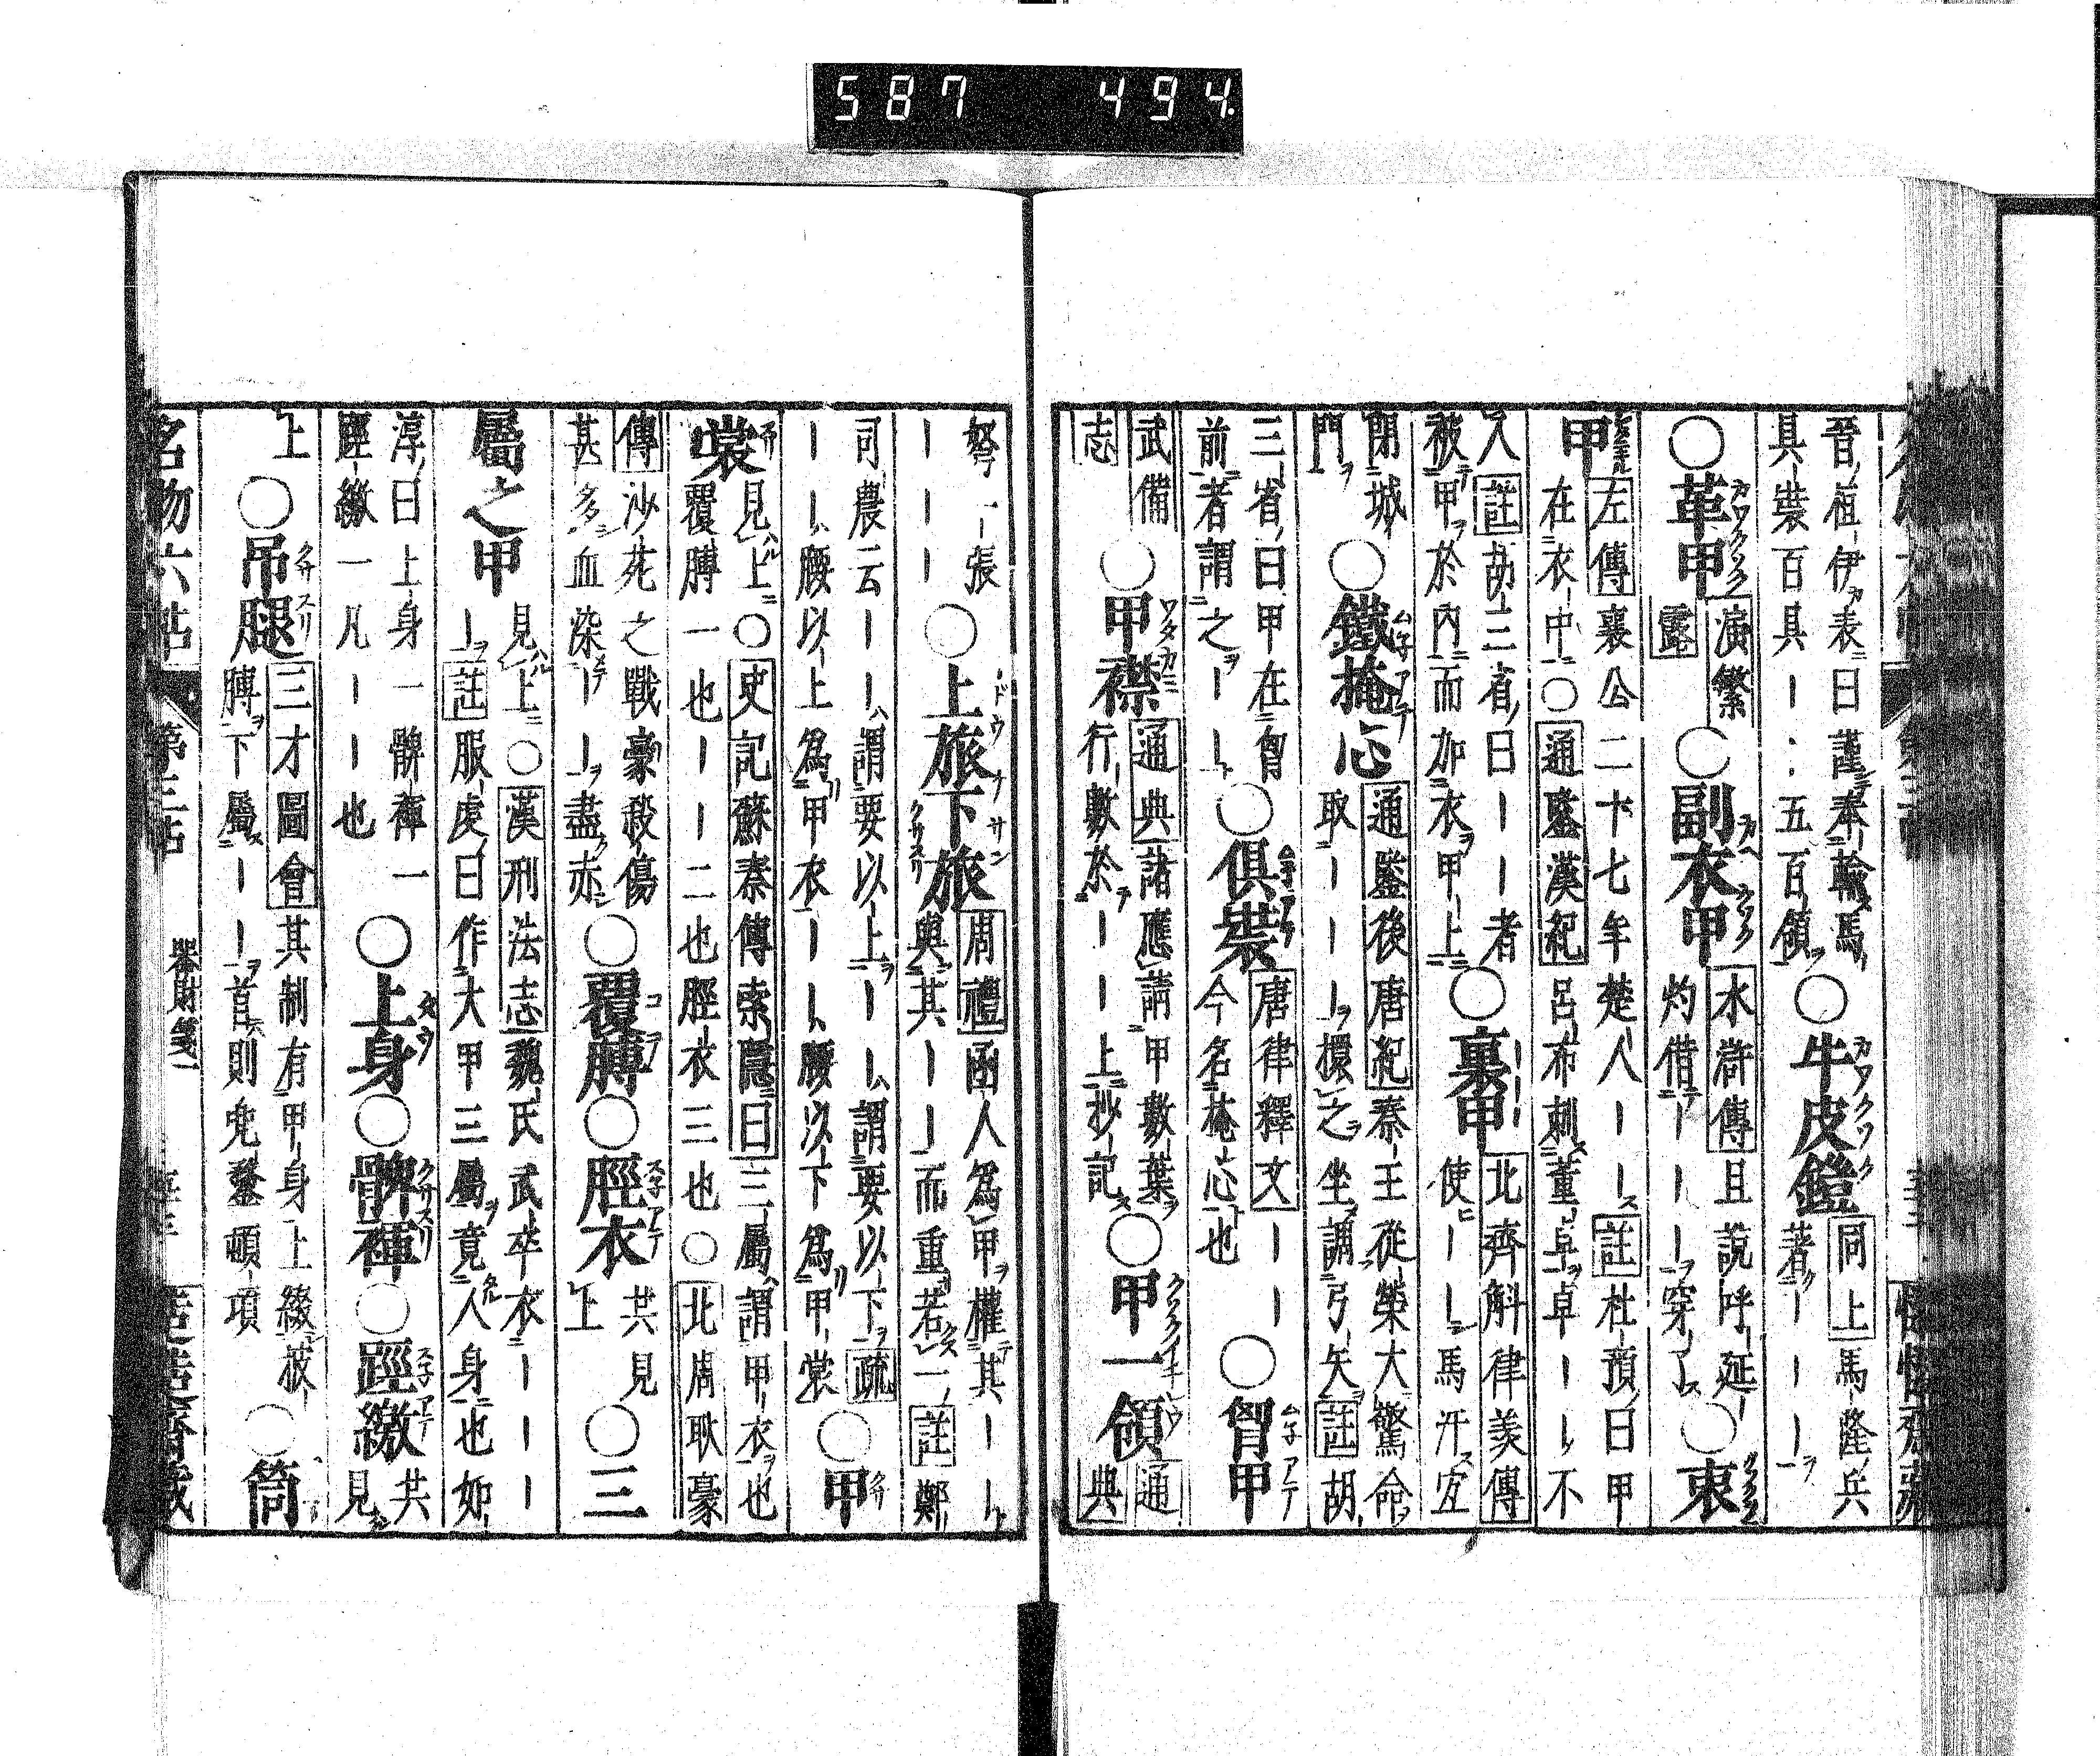 587 494.
晉、桓伊表曰謹奉輸馬
具裝百具｜、五百領 〇牛皮鎧 同上 馬隆、兵
著｜｜｜
〇革甲 演繁露 〇副衣甲 水滸傳 且說呼延
灼借｜｜｜穿了 〇衷
甲 左傳 襄公二十七年楚人｜｜註杜預曰甲
在衣中〇通鑒漢紀 呂布刺董卓卓｜、不
入註胡三省曰｜｜者
被甲於內而加衣甲上 〇裏甲 北齊斛律羨傳
使｜｜馬汗宜
閉城
門 〇鐵掩心 通鑒後唐紀 秦王從榮大驚命
取｜｜｜擐之坐調弓矢註胡
三省曰甲在胷
前者謂之｜｜ 〇俱裝 唐律釋文｜｜
今名掩心也 〇胷甲
武備
志 〇甲襟 通典 諸應請甲數葉
行數於｜｜上抄記 〇甲一領 通
典
弩一張
｜｜｜ 〇上旅下旅 周禮 函人爲甲權其｜｜
與其｜｜而重若一、註鄭
司農云｜｜謂要以上｜｜謂要以下疏
｜｜腰以上爲甲衣｜｜腰以下爲甲裳 〇甲
裳 見上〇史記蘇秦傳索隱曰三屬謂甲衣也
覆膊一也｜｜二也脛衣三也〇北周耿豪
傳 沙苑之戰豪殺傷
甚多血染｜｜盡赤 〇覆膊〇脛衣 共見
上 〇三
屬之甲 見上〇漢刑法志 魏氏武卒衣｜｜｜
｜註服虔曰作大甲三屬竟人身也如
淳曰上身一髀褌一
脛繳一凡｜｜也 〇上身〇髀褌〇踁繳 共
見
上 〇吊腿 三才圖會 其制有甲身上綴披
膊下屬｜｜首則兜鍪頓項 〇筒
名物六帖 第三帖 器財箋一